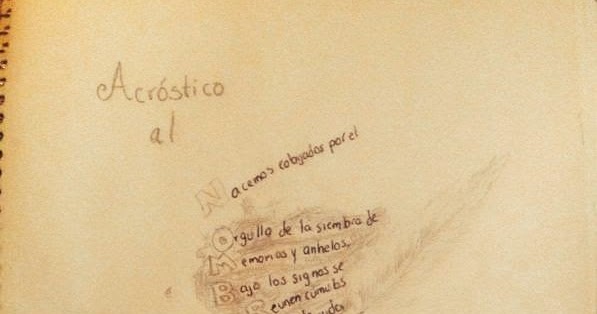 Acróstico
al
Nacemos cobijados por el
Orgullo de la siembra de
Memorias y anhelos.
Bajo los signos se
Reunen cúmulos